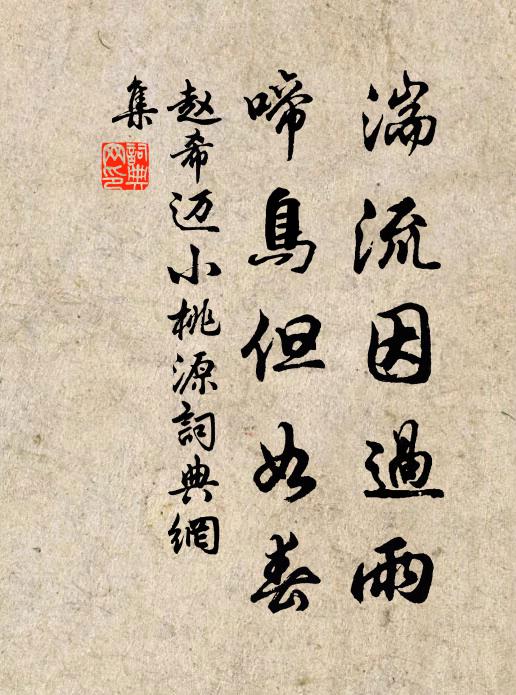 湍流因過雨
啼鳥但如春
赵希迈小桃源詞典網
集
詞典
网印